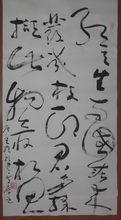 红豆生南國春來
發幾枝願君多采
擷此物最相思